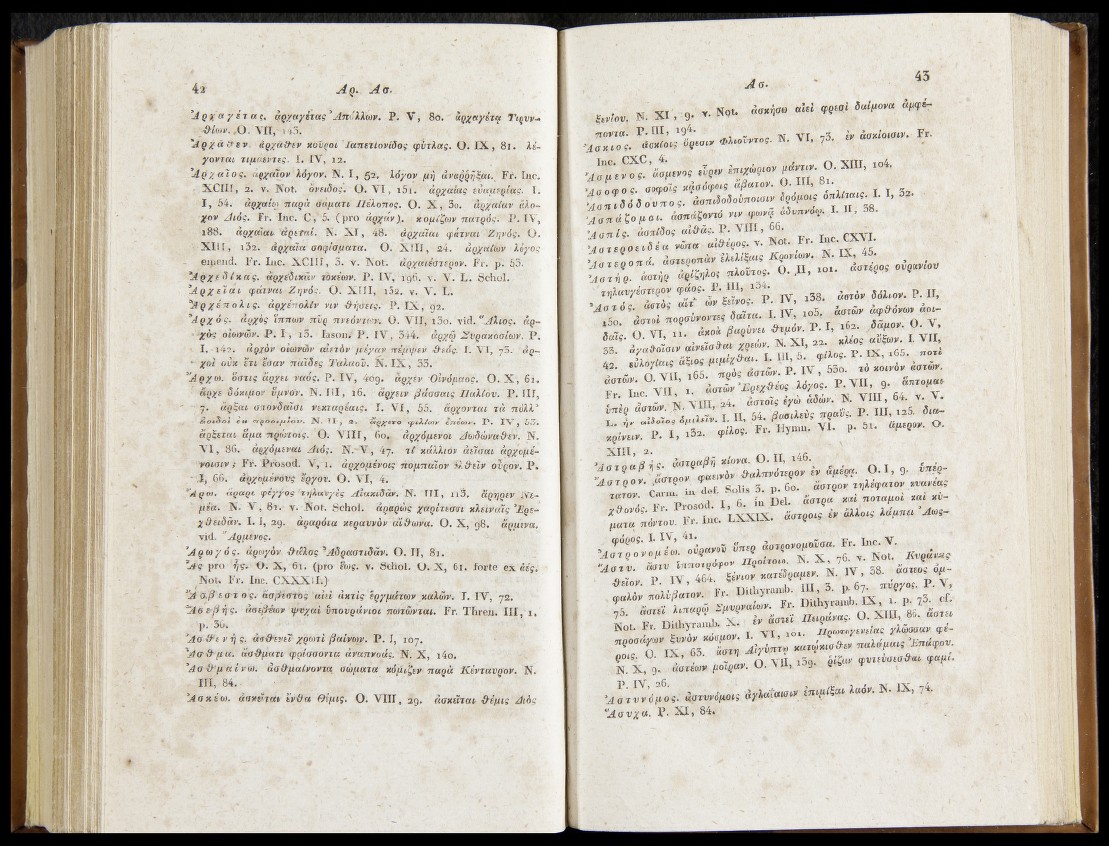 42 Αρ. Ασ.
Ἀρχαγέτας. ἀρχαγέτας Ἀπόλλων. P. V, 80. ἀρχαγέτᾳ Τιρυν-
θίων. O. VII, 143.
Ἀρχᾶθεν. ἀρχᾶθεν κοῦροι Ἰαπετιονίδος φύτλας. O. IX, 81. λέ-
γονται τιμωέντες. I. IV, 12.
Ἀρχαῖος. ἀρχαῖον λόγον. N. I, 52. λόγον μὴ ἀναῤῥῆξαι. Fr. Inc.
XCIII, 2. v. Not. ὄνειδος. O. VI, 151. ἀρχαίας εὐαμερίας. I.
I, 54. ἀρχαίῳ παρὰ σάματι Πέλοπος. O. X, 30. ἀρχαίαν ἄλο-
χον Διός. Fr. Inc. C, 5. (pro ἀρχάν). κομίζων πατρός. P. IV,
188. ἀρχαῖαι ἀρεταί. N. XI, 48. ἀρχαῖαι φάτναι Ζηνός. O.
XIII, 132. ἀρχαῖα σοφίσματα. O. XIII, 24. ἀρχαίων λόγος
emend. Fr. Inc. XCIII, 3. v. Not. ἀρχαιέστερον. Fr. p. 55.
Ἀρχεδίκας. ἀρχεδικᾶν τοκέων. P. IV, 196. v. V. L. Schol.
Ἀρχεῖαι φάτναι Ζηνός. O. XIII, 132. v. V. L.
Ἀρχέπολις. ἀρχέπολίν νιν θήσεις. P. IX, 92.
Ἀρχός. ἀρχὸς ἵππων πῦρ πνεόντων. O. VII, 130. vid. Ἅλιος. ἀρ-
χὸς οἰωνῶν. P. I, 15. Iason. P. IV, 344. ἀρχῷ Συρακοσίων. P.
I, 142. ἀρχὸν οἰωνῶν αἰετὸν μέγαν πέμψεν θεός. I. VI, 75. ἀρ-
χοὶ οὐκ ἔτι ἔσαν παῖδες Ταλαοῦ. N. IX, 33.
Ἄρχω. ὅστις ἄρχει ναός. P. IV, 409. ἄρχεν Οἰνόμαος. O. X, 61.
ἄρχε δόκιμον ὕμνον. N. III, 16. ἄρχειν βάσσαις Παλίου. P. III,
7. ἄρξαι σπονδαῖσι νεκταρέαις. I. VI, 55. ἄρχονται τὰ πόλλ’
ἀοιδοὶ ἐκ προοιμίου. N. II, 2. ἄρχετο φιλίων ἐπέων. P. IV, 53.
ἄρξεται ἅμα πρώτοις. O. VIII, 60. ἀρχόμενοι Δωδώναθεν. N.
VI, 86. ἀρχόμεναι Διός. N. V, 47. τί κάλλιον ἀεῖσαι ἀρχομέ-
νοισιν; Fr. Prosod. V, 1. ἀρχομένοις πομπαῖον ἐλθεῖν οὖρον. P.
I, 66. ἀρχομένους ἔργου. O. VI, 4.
Ἄρω. ἄραρε φέγγος τηλαυγὲς Αἰακιδᾶν. N. III, 113. ἄρηρεν Νε-
μέα. N. V, 81. v. Not. Schol. ἀραρὼς χαρίτεσσι κλειναῖς Ἐρε-
χθειδᾶν. I. I, 29. ἀραρότα κεραυνὸν αἴθωνα. O. X, 98. ἄρμενα.
vid. Ἄρμενος.
Ἀρωγός. ἀρωγὸν θάλος Ἀδραστιδᾶν. O. II, 81.
Ἇς pro ἧς. O. X, 61. (pro ἕως. v. Schol. O. X, 61. forte ex ἀές.
Not. Fr. Inc. CXXXII.)
Ἄσβεστος. ἄσβεστος αἰεὶ ἀκτὶς ἐργμάτων καλῶν. I. IV, 72.
Ἀσεβής. ἀσεβέων ψυχαὶ ὑπουράνιοι ποτῶνται. Fr. Thren. III, 1,
p. 36.
Ἀσθενής. ἀσθενεῖ χρωτὶ βαίνων. P. I, 107.
Ἄσθμα. ἄσθματι φρίσσοντα ἀναπνοάς. N. X, 140.
Ἀσθμαίνω. ἀσθμαίνοντα σώματα κόμιζεν παρὰ Κένταυρον. N.
III, 84.
Ἀσκέω. ἀσκεῖται ἔνθα Θέμις. O. VIII, 29. ἀσκεῖται θέμις Διὸς
Ας. 43
ξενίου. N. XI, 9. v. Not. ἀσκήσω αἰεὶ φρεσὶ δαίμονα ἀμφέ-
ποντα. P. III, 194.
Ἄσκιος. ἀσκίοις ὄρεσιν Φλιοῦντος. N. VI, 73. ἐν ἀσκίοισιν. Fr.
Inc. CXC, 4.
Ἄσμενος. ἄσμενος εὗρεν ἐπιχώριον μάντιν. O. XIII, 104.
Ἄσοφος. σοφοῖς κἀσόφοις ἄβατον. O. III, 81.
Ἀσπιδόδουπος. ἀσπιδοδούποισιν δρόμοις ὁπλίταις. I. I, 32.
Ἀσπάζομαι. ἀσπάζοντό νιν φωνᾷ ἁδυπνόῳ. I. II, 38.
Ἀσπίς. ἀσπίδος αἰθᾶς. P. VIII, 66.
Ἀστεροειδέα νῶτα αἰθέρος. v. Not. Fr. Inc. CXVI.
Ἀστεροπά. ἀστεροπὰν ἐλελίξαις Κρονίων. N. IX, 45.
Ἀστήρ. ἀστὴρ ἀρίζηλος πλοῦτος. O. II, 101. ἀστέρος οὐρανίου
τηλαυγέστερον φάος. P. III, 134.
Ἀστός. ἀστὸς αἴτ’ ὦν ξεῖνος. P. IV, 138. ἀστὸν δόλιον. P. II,
150. ἀστοὶ πορσύνοντες δαῖτα. I. IV, 105. ἀστῶν ἀφθόνων ἀοι-
δαῖς. O. VI, 11. ἀκοὰ βαρύνει θυμόν. P. I, 162. δᾶμον. O. V,
33. ἀγαθοῖσιν αἰνεῖσθαι χρεών. N. XI, 22. κλέος αὔξων. I. VII,
42. εὐλογίαις ἄξιος μεμίχθαι. I. III, 5. φίλος. P. IX, 165. ποτὶ
ἀστῶν. O. VII, 165. πρὸς ἀστῶν. P. IV, 530. τὸ κοινὸν ἀστῶν.
Fr. Inc. VII, 1. ἀστῶν Ἐρεχθέος λόγος. P. VII, 9. ἅπτομαι
ὑπὲρ ἀστῶν. N. VIII, 24. ἀστοῖς ἐγὼ ἁδών. N. VIII, 64. v. V.
L. ἦν αἰδοῖος ὁμιλεῖν. I. II, 54. βασιλεὺς πραΰς. P. III, 125. δια-
κρίνειν. P. I, 132. φίλος. Fr. Hymn. VI. p. 51. ἅμερον. O.
XIII, 2.
Ἀστραβής. ἀστραβῆ κίονα. O. II, 146.
Ἄστρον. ἄστρον φαεινὸν θαλπνότερον ἐν ἁμέρᾳ. O. I, 9. ὑπέρ-
τατον. Carm. in def. Solis 3. p. 60. ἄστρον τηλέφατον κυανέας
χθονός. Fr. Prosod. I, 6. in Del. ἄστρα καὶ ποταμοὶ καὶ κύ-
ματα πόντου. Fr. Inc. LXXIX. ἄστροις ἐν ἄλλοις λάμπει Ἀωσ-
φόρος. I. IV, 41.
Ἀστρονομέω. οὐρανοῦ ὕπερ ἀστρονομοῦσα. Fr. Inc. V.
Ἄστυ. ἄστυ ἱπποτρόφον Προίτοιο. N. X, 76. v. Not. Κυράνας
θεῖον. P. IV, 464. ξένιον κατέδραμεν. N. IV, 38. ἄστεος ὀμ-
φαλὸν πολύβατον. Fr. Dithyramb. III, 3. p. 67. πύργος. P. V,
75. ἄστεϊ λιπαρῷ Σμυρναίων. Fr. Dithyramb. IX, 1. p. 73. cf.
Not. Fr. Dithyramb. X. ἐν ἄστεϊ Πειράνας. O. XIII, 86. ἄστει
προσάγων ξυνὸν κόσμον. I. VI, 101. Πρωτογενείας γλῶσσαν φέ-
ροις. O. IX, 63. ἄστη Αἰγύπτῳ κατῴκισθεν παλάμαις Ἐπάφου.
N. X, 9. ἀστέων μοῖραν. O. VII, 139. ῥίζαν φυτεύσεσθαι φαμί.
P. IV, 26.
Ἀστυνόμος. ἀστυνόμοις ἀγλαΐαισιν ἐπιμῖξαι λαόν. N. IX, 74.
Ἄσυχα. P. XI, 84.